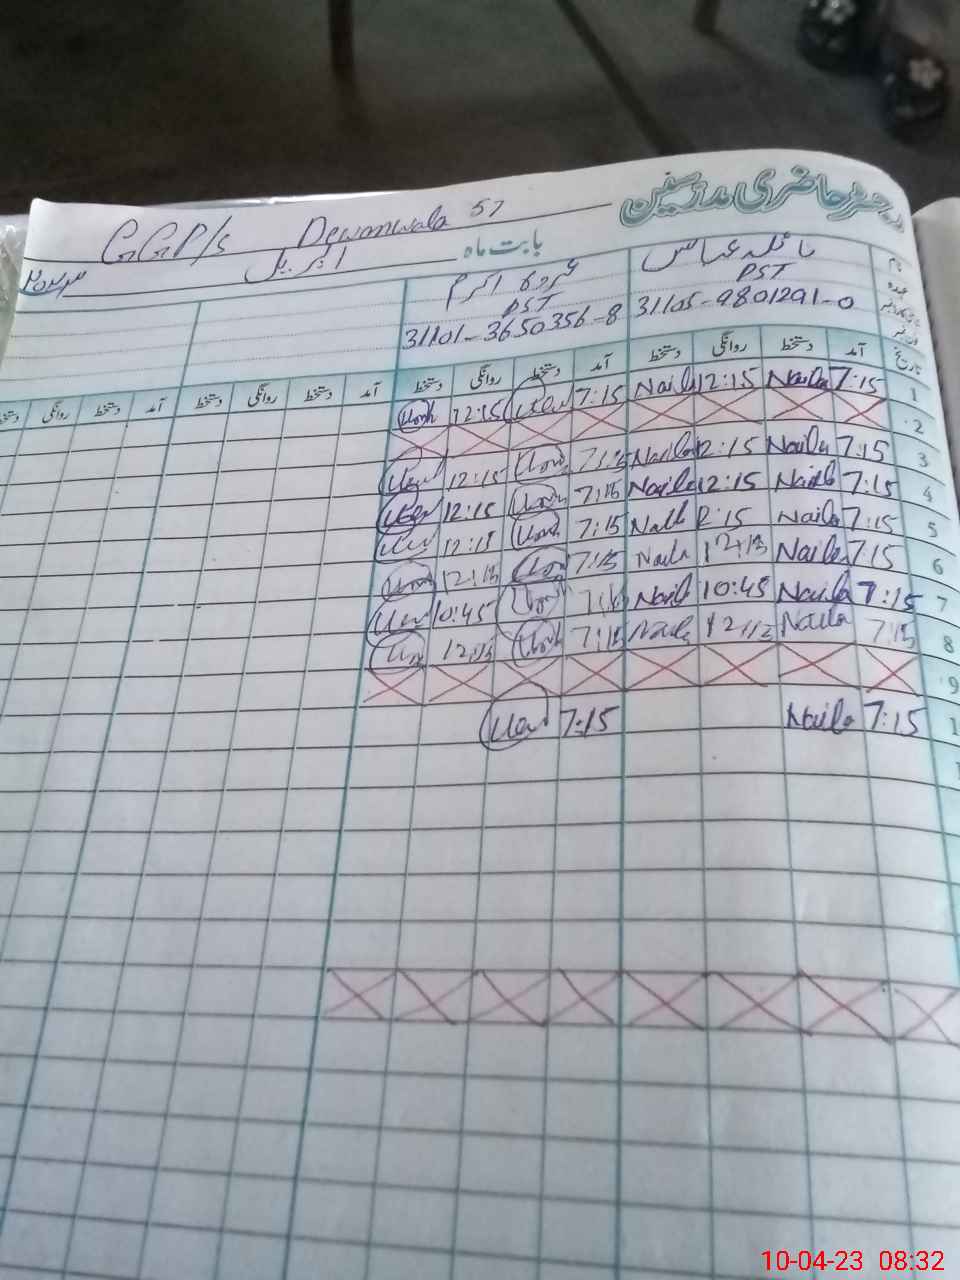 رجسٹر حاضری مدرسین
GGP/s Dewanwala 57
بابت ماہ اپریل ۲۰۲۳
نام نائلہ عباس عروج اکرم
عہدہ PST PST
31105-9801291-0 31101-3650356-8
تاریخ آمد دستخط روانگی دستخط آمد دستخط روانگی دستخط آمد دستخط روانگی دستخط آمد دستخط روانگی دستخط
1 7:15 Naila 12:15 Naila 7:15 12:15
2
3 7:15 Naila 12:15 Naila 7:15 12:15
4 7:15 Naila 12:15 Naila 7:15 12:15
5 7:15 Naila 12:15 Naila 7:15 12:15
6 7:15 Naila 12:15 Naila 7:15 12:15
7 7:15 Naila 10:45 Naila 7:15 10:45
8 7:15 Naila 12:15 Naila 7:15 12:15
9
7:15 Naila 7:15
10-04-23 08:32